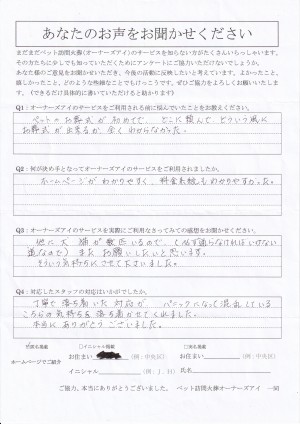 あなたのお声をお聞かせください
まだまだペット訪問火葬(オーナーズアイ)のサービスを知らない方がたくさんいらっしゃいます。
そのため
あなた様のご意見をお聞かせいただき、今後の活動に反映したいと考えています。よかったこと、
嬉しかったこと、どのような性質でもけっこうです。ぜひご協力をよろしくお願いいたします。
(できるだけ具体的に書いていただけると助かります)
Q1:オーナーズアイのサービスをご利用される前に悩んでいたことをお教えください。
ペットのお葬式が初めてで、どこに頼んで、どういう風に
お葬式が出来るか、全くわからなかった。
Q2:何が決め手となってオーナーズアイのサービスをご利用されましたか。
ホームページがわかりやすく、料金表もわかりやすかった。
Q3:オーナーズアイのサービスを実際にご利用なさってみての感想をお聞かせください。
他に犬、猫が数匹いるので、(必ず通らなければいけない
道なので)またお願いしたいと思います。
そういう気持ちにさせて下さいました。
Q4:対応したスタッフの対応はいかがでしたか。
丁寧で落ち着いた対応が、パニックになって混乱している
こちらの気持ちを落ち着かせてくれました。
本当にありがとうございました。
ホームページでご紹介
□イニシャル掲載
お住まい
(例:中央区)
イニシャル
(例:J.H)
□実名掲載
お住まい
(例:中央区)
氏名
ご協力、本当にありがとうございました。 ペット訪問火葬オーナーズアイ